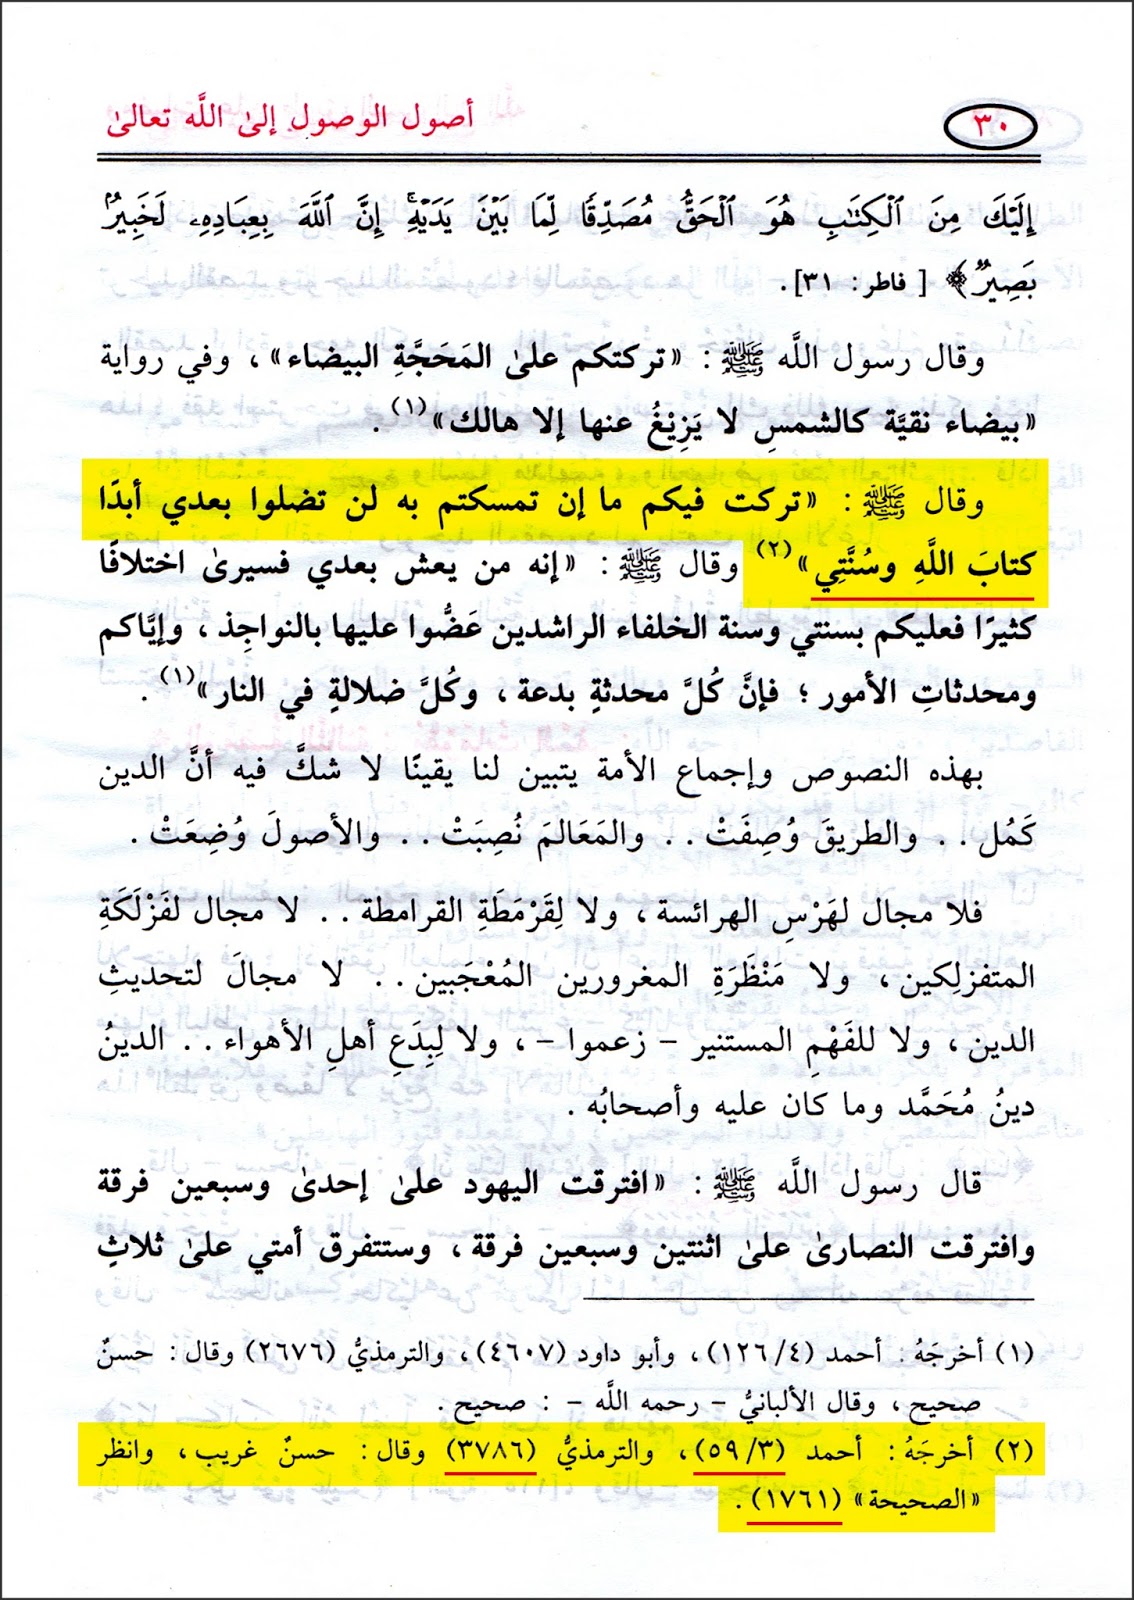 ٣٠
أصول الوصول إلىٰ اللَّه تعالىٰ
إِلَيْكَ مِنَ ٱلْكِتَٰبِ هُوَ ٱلْحَقُّ مُصَدِّقًا لِّمَا بَيْنَ يَدَيْهِۗ إِنَّ ٱللَّهَ بِعِبَادِهِۦ لَخَبِيرٌۢ
بَصِيرٌ﴾ [ فاطر : ٣١] .
وقال رسول اللَّه ﷺ : «تركتكم علىٰ المَحَجَّةِ البيضاء» ، وفي رواية
«بيضاء نقيَّة كالشمسِ لا يَزِيْغُ عنها إلا هالك»(١) .
وقال ﷺ : «تركت فيكم ما إن تمسكتم به لن تضلوا بعدي أبدًا
كتابَ اللَّهِ وسُنَّتِي»(٢) وقال ﷺ : «إنه من يعش بعدي فسيرىٰ اختلافًا
كثيرًا فعليكم بسنتي وسنة الخلفاء الراشدين عَضُّوا عليها بالنواجِذ ، وإيَّاكم
ومحدثاتِ الأمور ؛ فإنَّ كُلَّ محدثةٍ بدعة ، وكُلَّ ضلالةٍ في النار»(١) .
بهذه النصوص وإجماع الأمة يتبين لنا يقينًا لا شكَّ فيه أنَّ الدين
كَمُل . . والطريقَ وُصِفَتْ . . والمَعَالَمَ نُصِبَتْ . . والأصولَ وُضِعَتْ .
فلا مجال لهَرْسِ الهرائسة ، ولا لِقَرْمَطَةِ القرامطة . . لا مجال لفَزْلَكَةِ
المتفزلِكين ، ولا مَنْظَرَةِ المغرورين المُعْجَبين . . لا مجالَ لتحديثِ
الدين ، ولا للفَهْمِ المستنير - زعموا - ، ولا لِبِدَعِ أهلِ الأهواء . . الدينُ
دينُ مُحَمَّد وما كان عليه وأصحابُه .
قال رسول اللَّه ﷺ : «افترقت اليهود علىٰ إحدىٰ وسبعين فرقة
وافترقت النصارىٰ علىٰ اثنتين وسبعين فرقة ، وستتفرق أمتي علىٰ ثلاثٍ
(١) أخرجَهُ : أحمد (٤/ ١٢٦) ، وأبو داود (٤٦٠٧) ، والترمذيُّ (٢٦٧٦) وقال : حسنٌ
صحيح ، وقال الألبانيُّ - رحمه اللَّه - : صحيح .
(٢) أخرجَهُ : أحمد (٣/ ٥٩) ، والترمذيُّ (٣٧٨٦) وقال : حسنٌ غريب ، وانظر
«الصحيحة» (١٧٦١) .